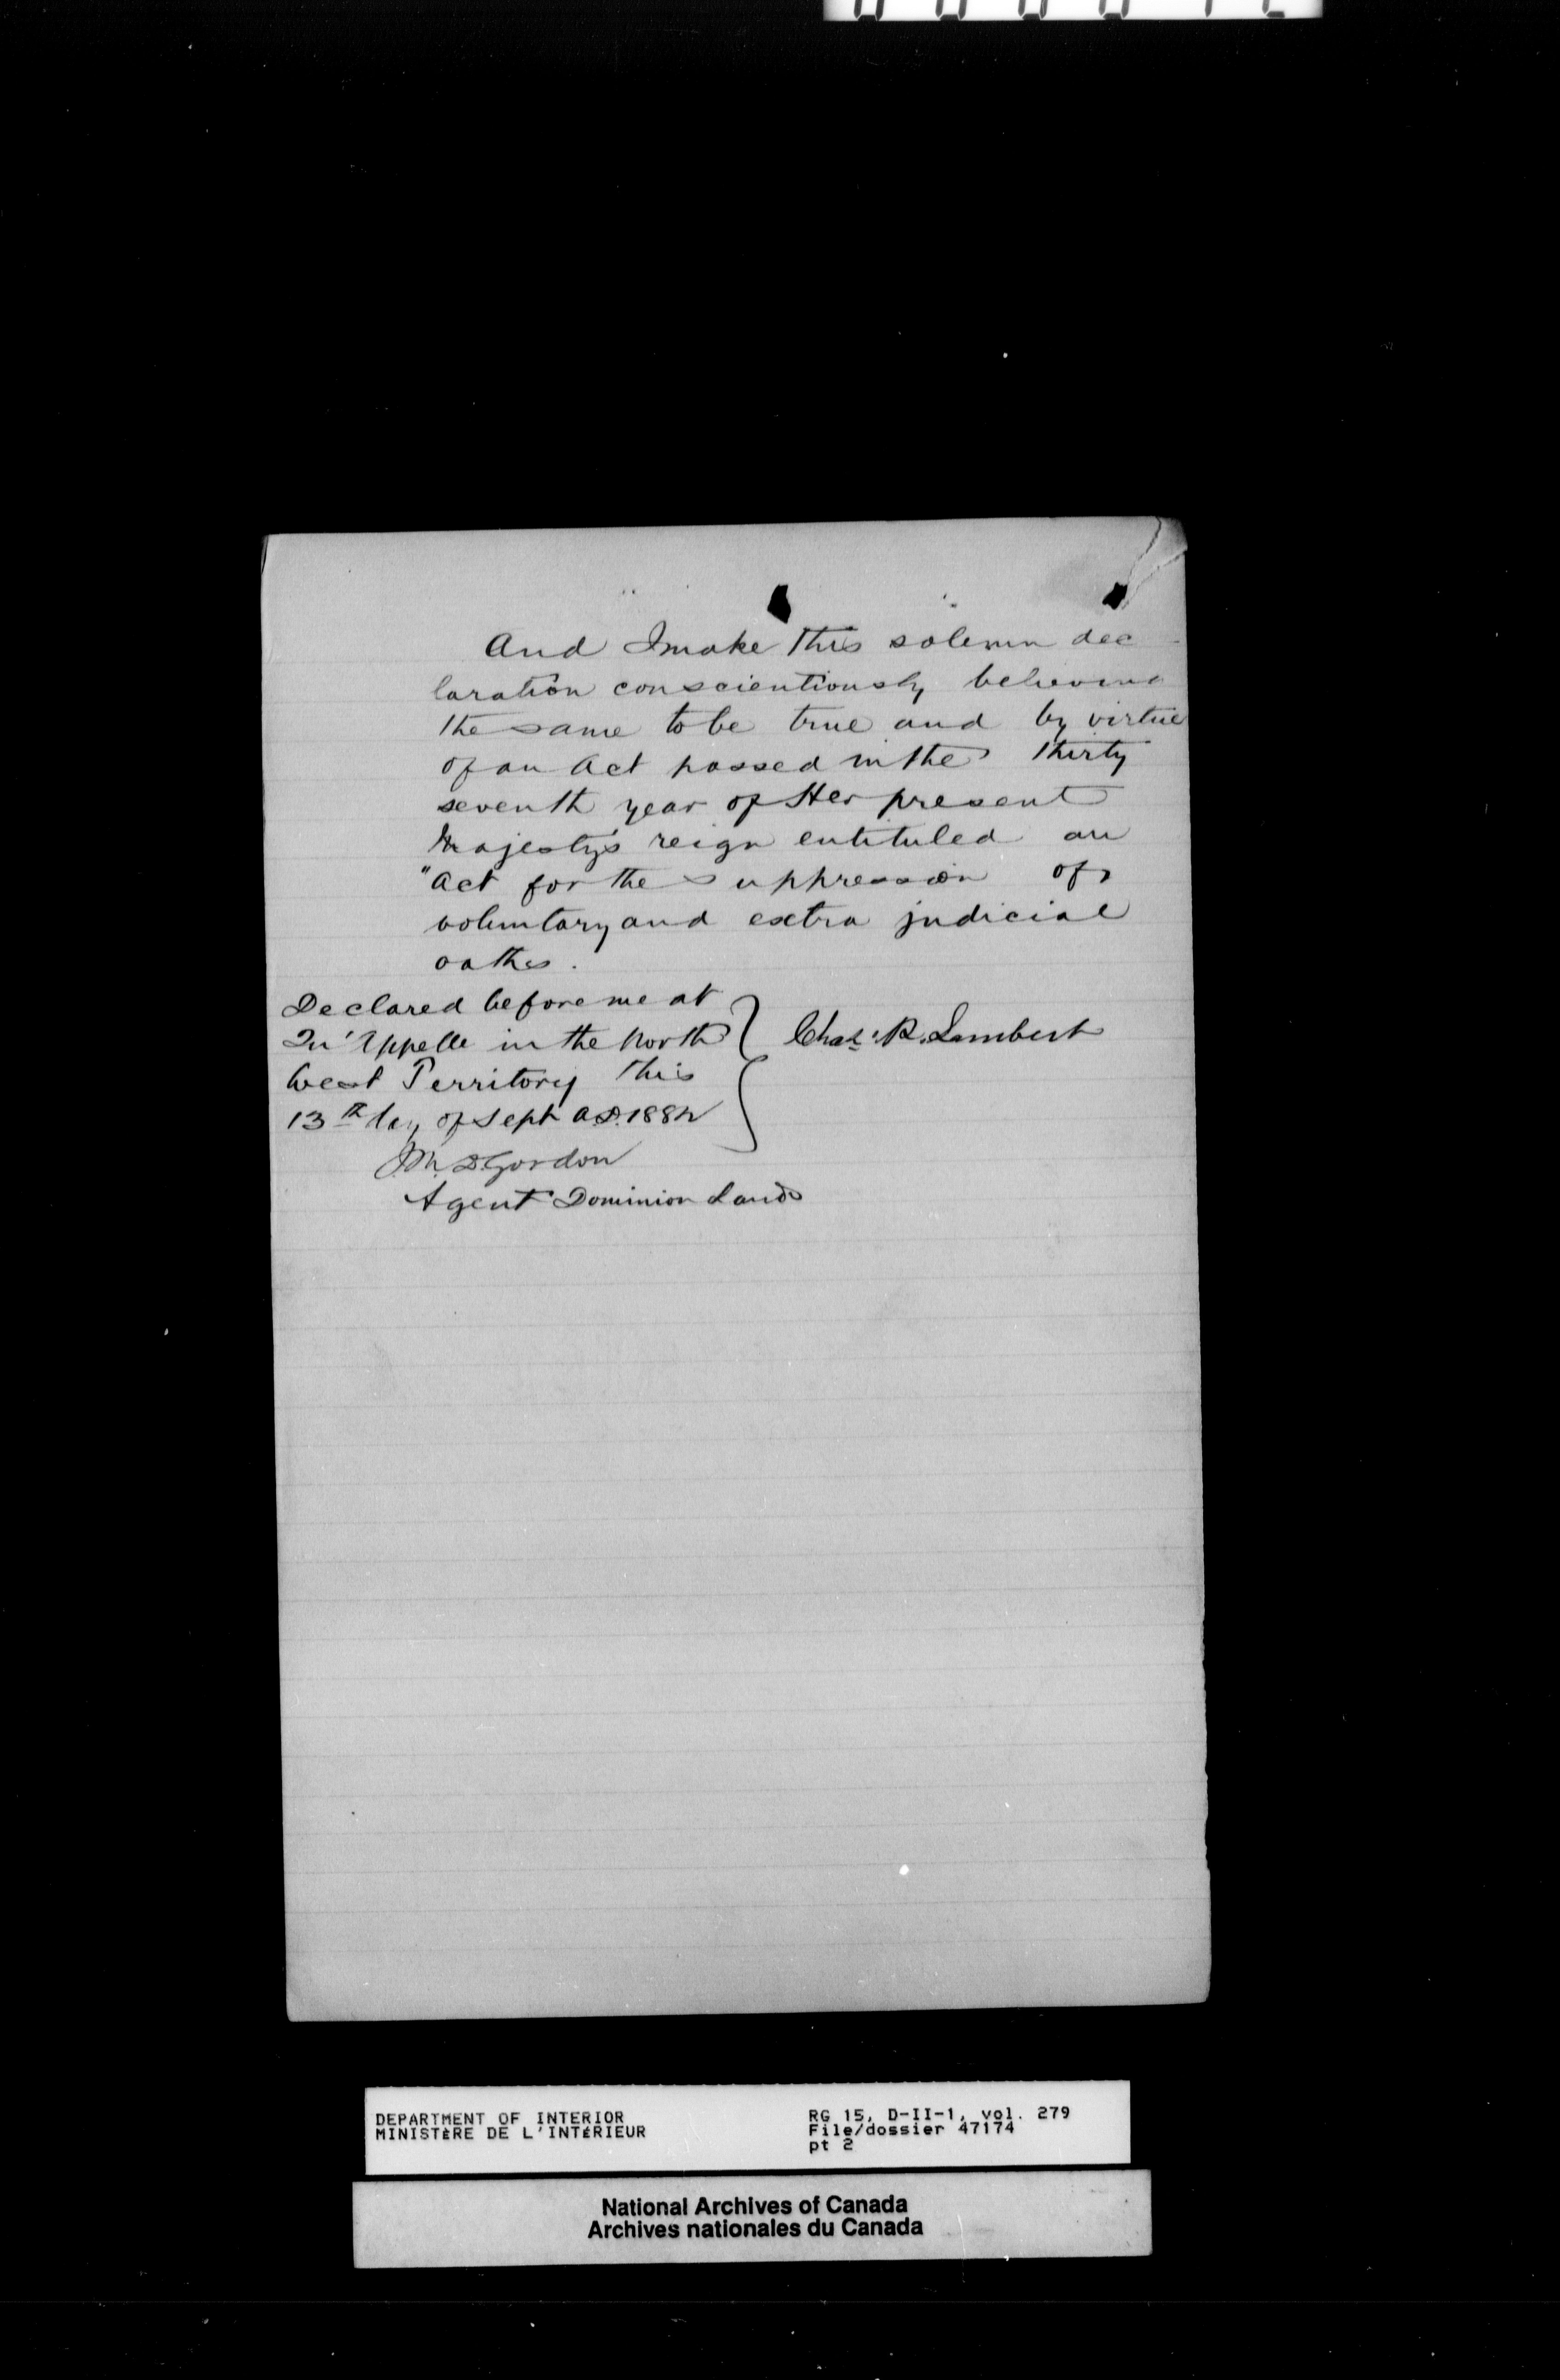 And I make this solemn dec
laration conscientiously believing
the same to be true and by virtue
of an Act passed in the thirty
seventh year of Her present
Majesty's reign entituled an
"Act for the suppression of
voluntary and extra judicial
oaths.
Declared before me at
Qu'Appelle in the North
West Territory this
13th day of Sept A.D. 1884
Chas. R. Lambert
J.M. D. Gordon
Agent Dominion Lands
DEPARTMENT OF INTERIOR
MINISTÈRE DE L'INTÉRIEUR
RG 15, D-II-1, vol. 279
File/dossier 47174
pt 2
National Archives of Canada
Archives nationales du Canada